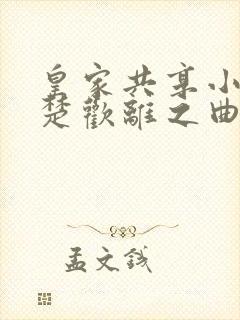 皇家共享小
楚歡離之曲
孟文钱